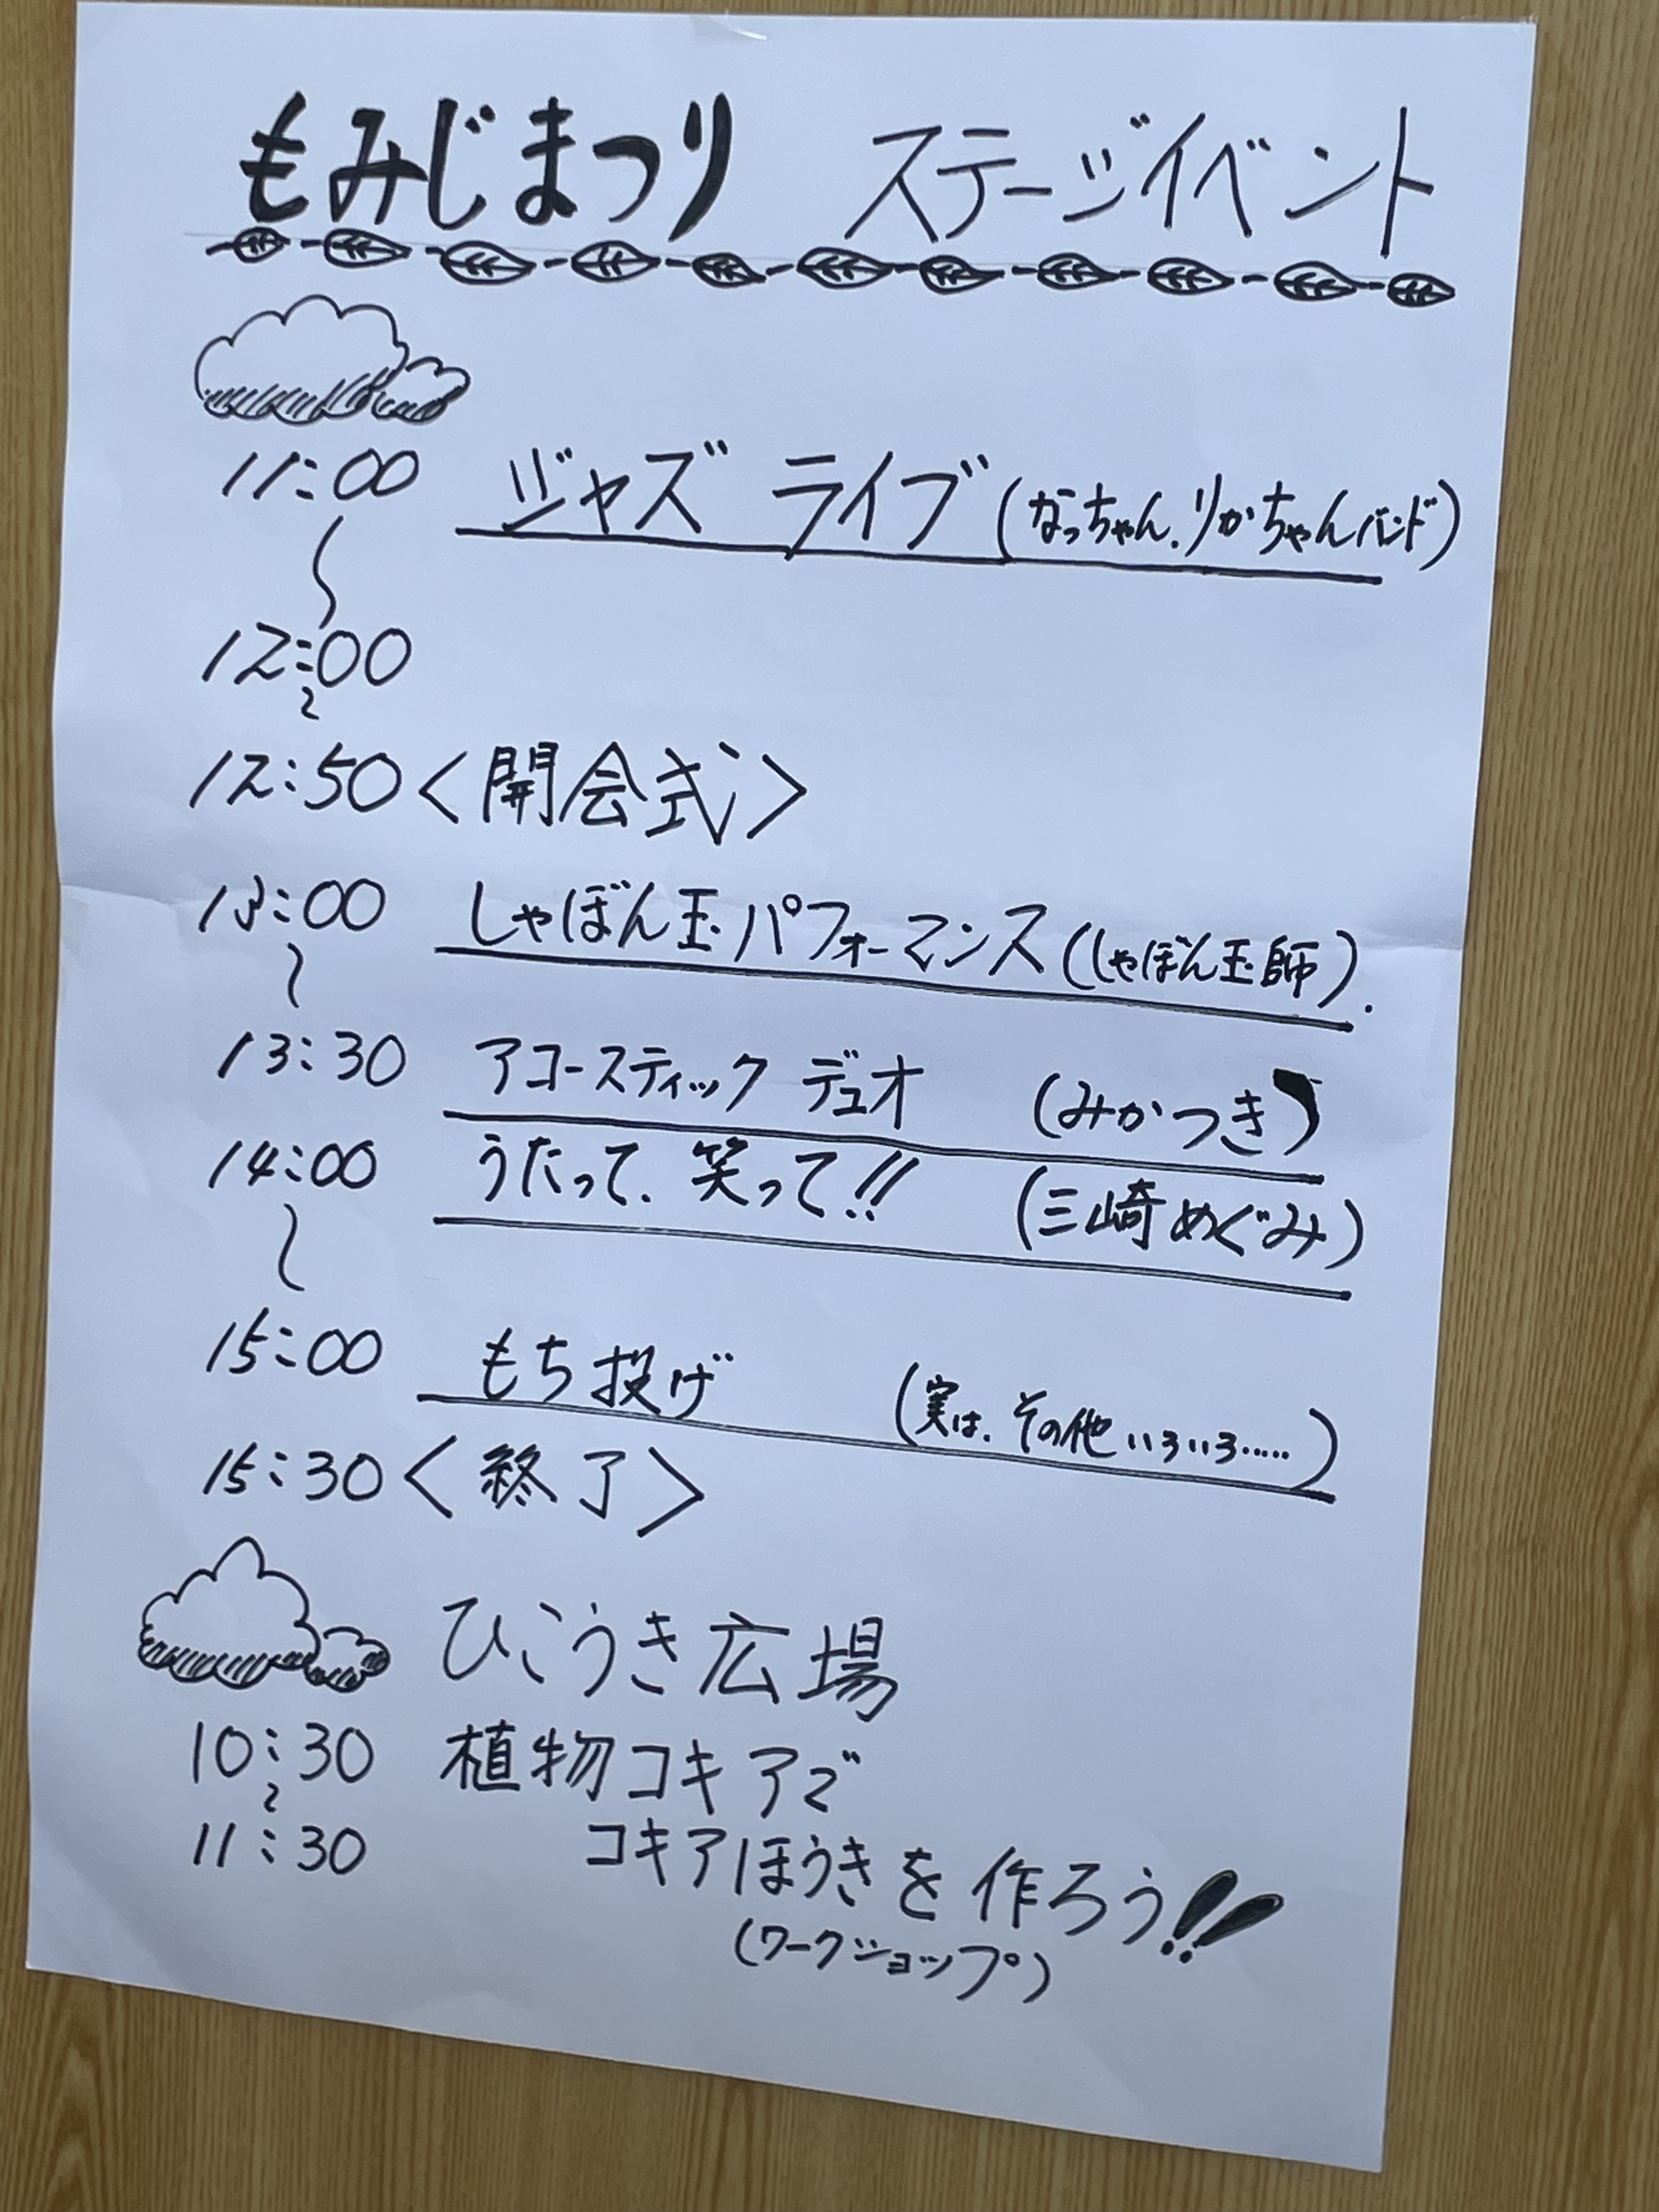 もみじまつり ステージイベント
11:00 ジャズ ライブ (なっちゃん.りかちゃんバンド)
〜
12:00
〜
12:50 <開会式>
13:00 しゃぼん玉パフォーマンス (しゃぼん玉師).
〜
13:30 アコースティック デュオ (みかつき)
14:00 うたって、笑って!! (三崎めぐみ)
〜
15:00 もち投げ (実は、その他いろいろ……)
15:30 <終了>
ひこうき広場
10:30 植物コキアで
〜
11:30 コキアほうきを作ろう!!
(ワークショップ)